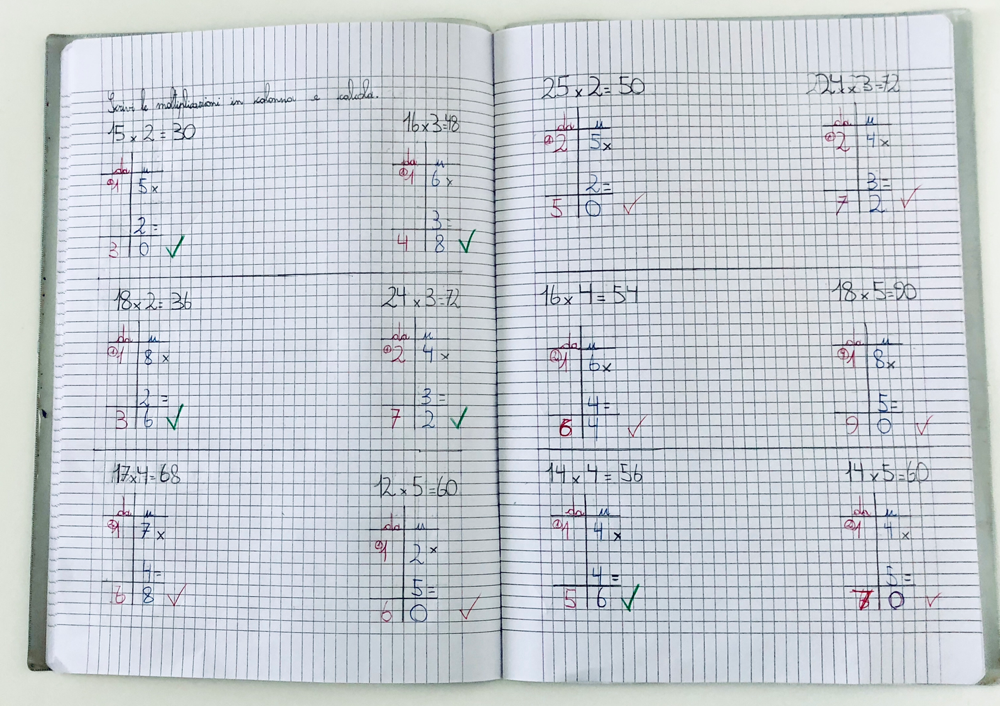 Scrivi le moltiplicazioni in colonna e calcola.
15 x 2 = 30
da u
1 5 x
2 =
3 0 ✓
16 x 3 = 48
da u
1 6 x
3 =
4 8 ✓
18 x 2 = 36
da u
1 8 x
2 =
3 6 ✓
24 x 3 = 72
da u
2 4 x
3 =
7 2 ✓
17 x 4 = 68
da u
1 7 x
4 =
6 8 ✓
12 x 5 = 60
da u
1 2 x
5 =
6 0 ✓
25 x 2 = 50
da u
2 5 x
2 =
5 0 ✓
24 x 3 = 72
da u
2 4 x
3 =
7 2 ✓
16 x 4 = 54
da u
1 6 x
4 =
6 4 ✓
18 x 5 = 90
da u
1 8 x
5 =
9 0 ✓
14 x 4 = 56
da u
1 4 x
4 =
5 6 ✓
14 x 5 = 60
da u
1 4 x
5 =
7 0 ✓